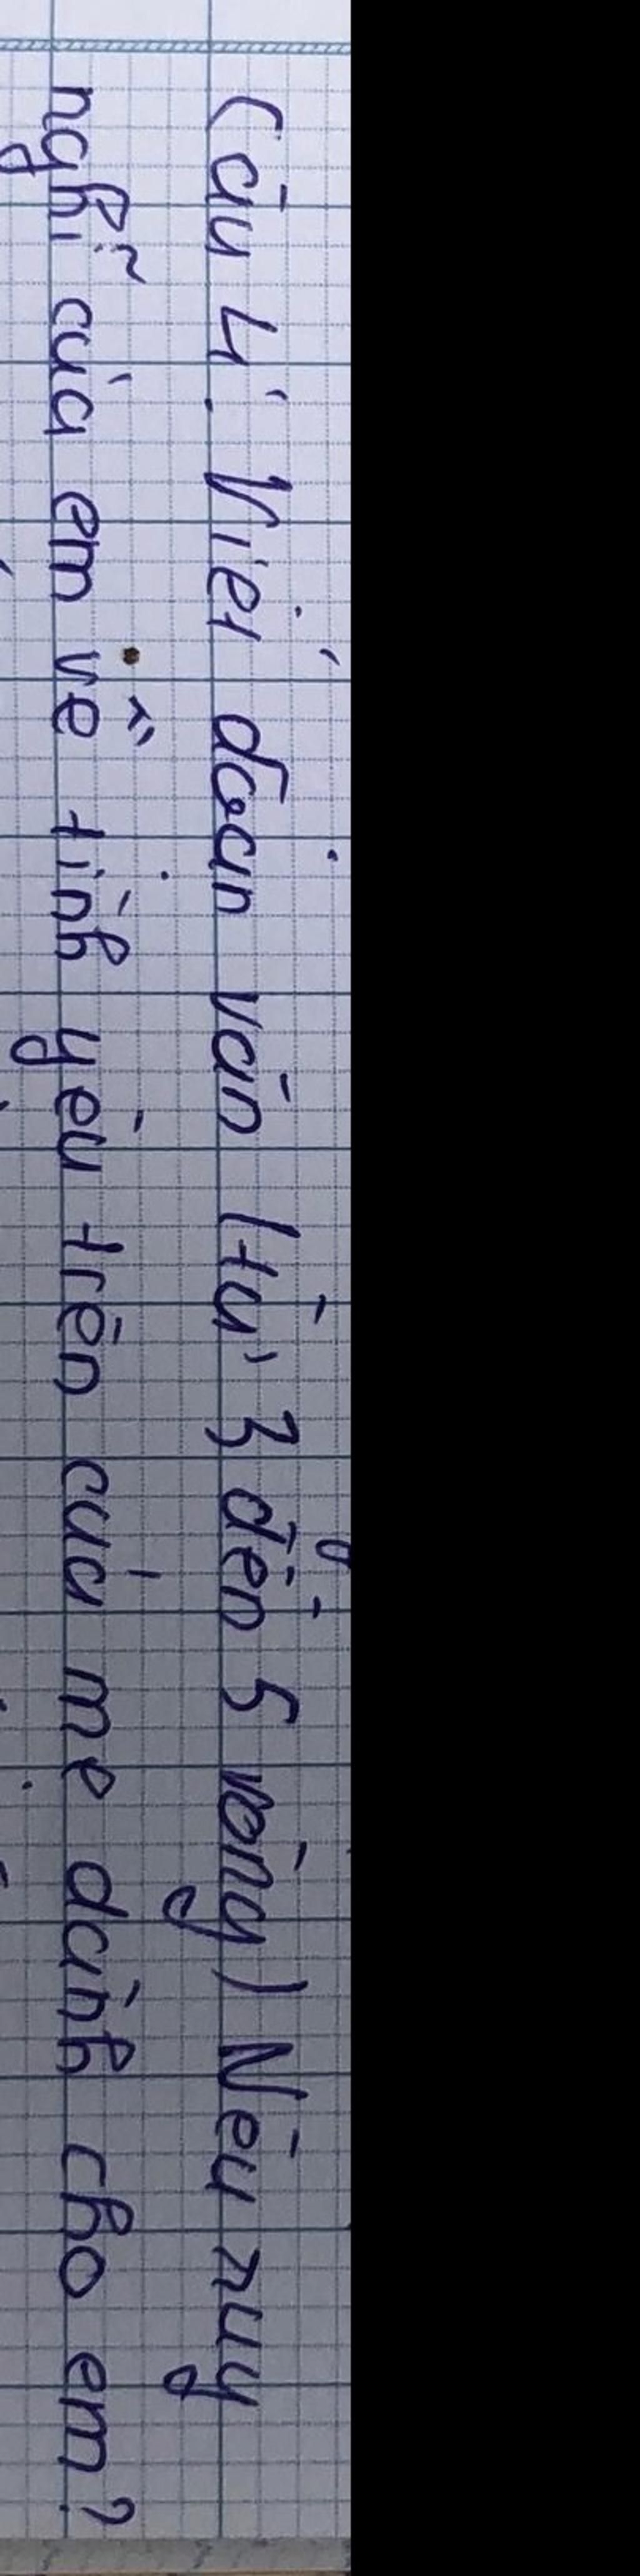 Câu 4. Viết đoạn văn (từ 3 đến 5 vòng) Nêu suy
nghĩ của em về tình yêu trên của mẹ dành cho em?